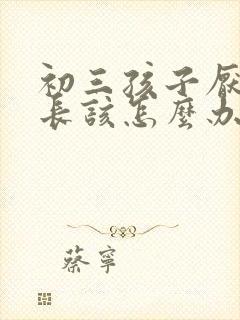 初三孩子厭
長該怎麼办
蔡寧